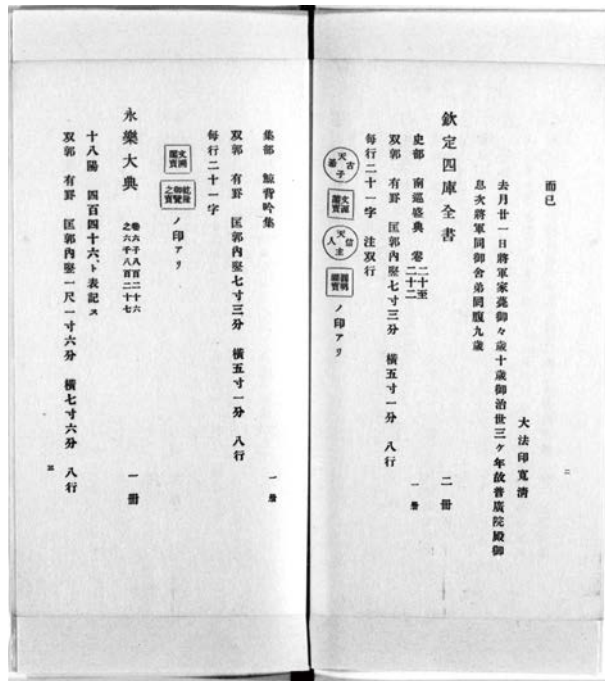 二
而已
大法印寛清
去月廿一日將軍家薨御々歳十歳御治世三ケ年故普廣院殿御
息次將軍同御舍弟同腹九歳
欽定四庫全書 二冊
史部 南巡盛典 卷二十至二十二 一册
双郭 有罫 匡郭内竪七寸三分 横五寸一分 八行
毎行二十一字 注双行
古希天子 文源閣寶 信天主人 圓明園寶 ノ印アリ
集部 鯨背吟集 一册
双郭 有罫 匡郭内竪七寸三分 横五寸一分 八行
毎行二十一字
文溯閣寶 乾隆御覽之寶 ノ印アリ
永樂大典 卷六千八百二十六之六千八百二十七 一冊
十八陽 四百四十六、ト表記ス
双郭 有罫 匡郭内竪一尺一寸六分 横七寸六分 八行
三